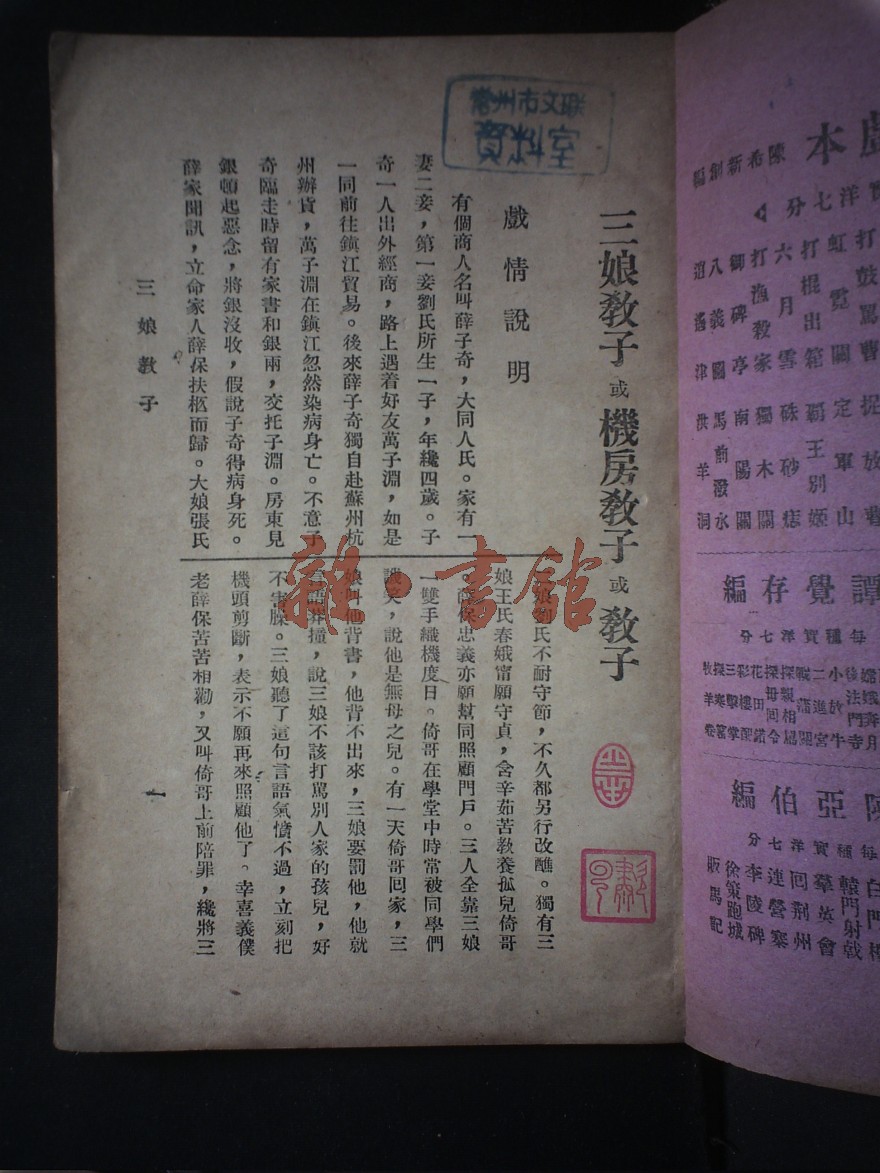 常州市文联
資料室
三娘教子 或 機房教子 或 教子
戲情說明
有個商人名叫薛子奇，大同人氏。家有一
妻二妾，第一妾劉氏所生一子，年纔四歲。子
奇一人出外經商，路上遇着好友萬子淵，如是
一同前往鎮江貿易。後來薛子奇獨自赴蘇州杭
州辦貨，萬子淵在鎮江忽然染病身亡。不意子
奇臨走時留有家書和銀兩，交托子淵。房東見
銀頓起惡念，將銀沒收，假說子奇得病身死。
薛家聞訊，立命家人薛保扶柩而歸。大娘張氏
二娘劉氏不耐守節，不久都另行改醮。獨有三
娘王氏春娥甯願守貞，含辛茹苦教養孤兒倚哥
。薛保忠義亦願幫同照顧門戶。三人全靠三娘
一雙手織機度日。倚哥在學堂中時常被同學們
談笑，說他是無母之兒。有一天倚哥回家，三
娘叫他背書，他背不出來，三娘要罰他，他就
言語莽撞，說三娘不該打罵別人家的孩兒，好
不害臊。三娘聽了這句言語氣憤不過，立刻把
機頭剪斷，表示不願再來照顧他了。幸喜義僕
老薛保苦苦相勸，又叫倚哥上前陪罪，纔將三
三娘教子
一
雜·書館
戲本
陳希新創編
實洋七分
打鼓罵曹
虹霓關
打棍出箱
六月雪
打漁殺家
御碑亭
八義圖
捉放
定軍山
霸王別姬
硃砂痣
獨木關
南陽關
馬前潑水
洪羊洞
譚覺存編
每種實洋七分
陳亞伯編
每種實洋七分
白門樓
轅門射戟
羣英會
回荊州
連營寨
李陵碑
徐策跑城
販馬記